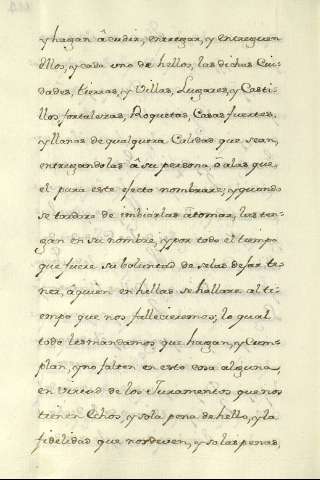 yhagan âcudir, entregar, y entreguen
ellos, y cada uno de hellos, las dichas Ciu-
dades, tierras, y Villas, Lugares, y Casti-
llos, fortalezas, Roquetas, Casas fuertes,
y llanas de qualquera Calidad que sean,
entregandolas â su persona, ô alas que
el para este efecto nombrare; y quando
se tardare de imbiarlas âtomar, las ten-
gan en su nombre, y por todo el tiempo
que fuere su boluntad de selas dejar te-
ner, âquien en hellas se hallare al ti-
empo que nos fallecieremos; lo qual
todo les mandamos que hagan, y Cum-
plan, y no falten en esto cosa alguna,
en virtud de los Juramentos que nos
tienen Echos, y sola pena de hello, y la
fidelidad que nos deven, y solas penas,